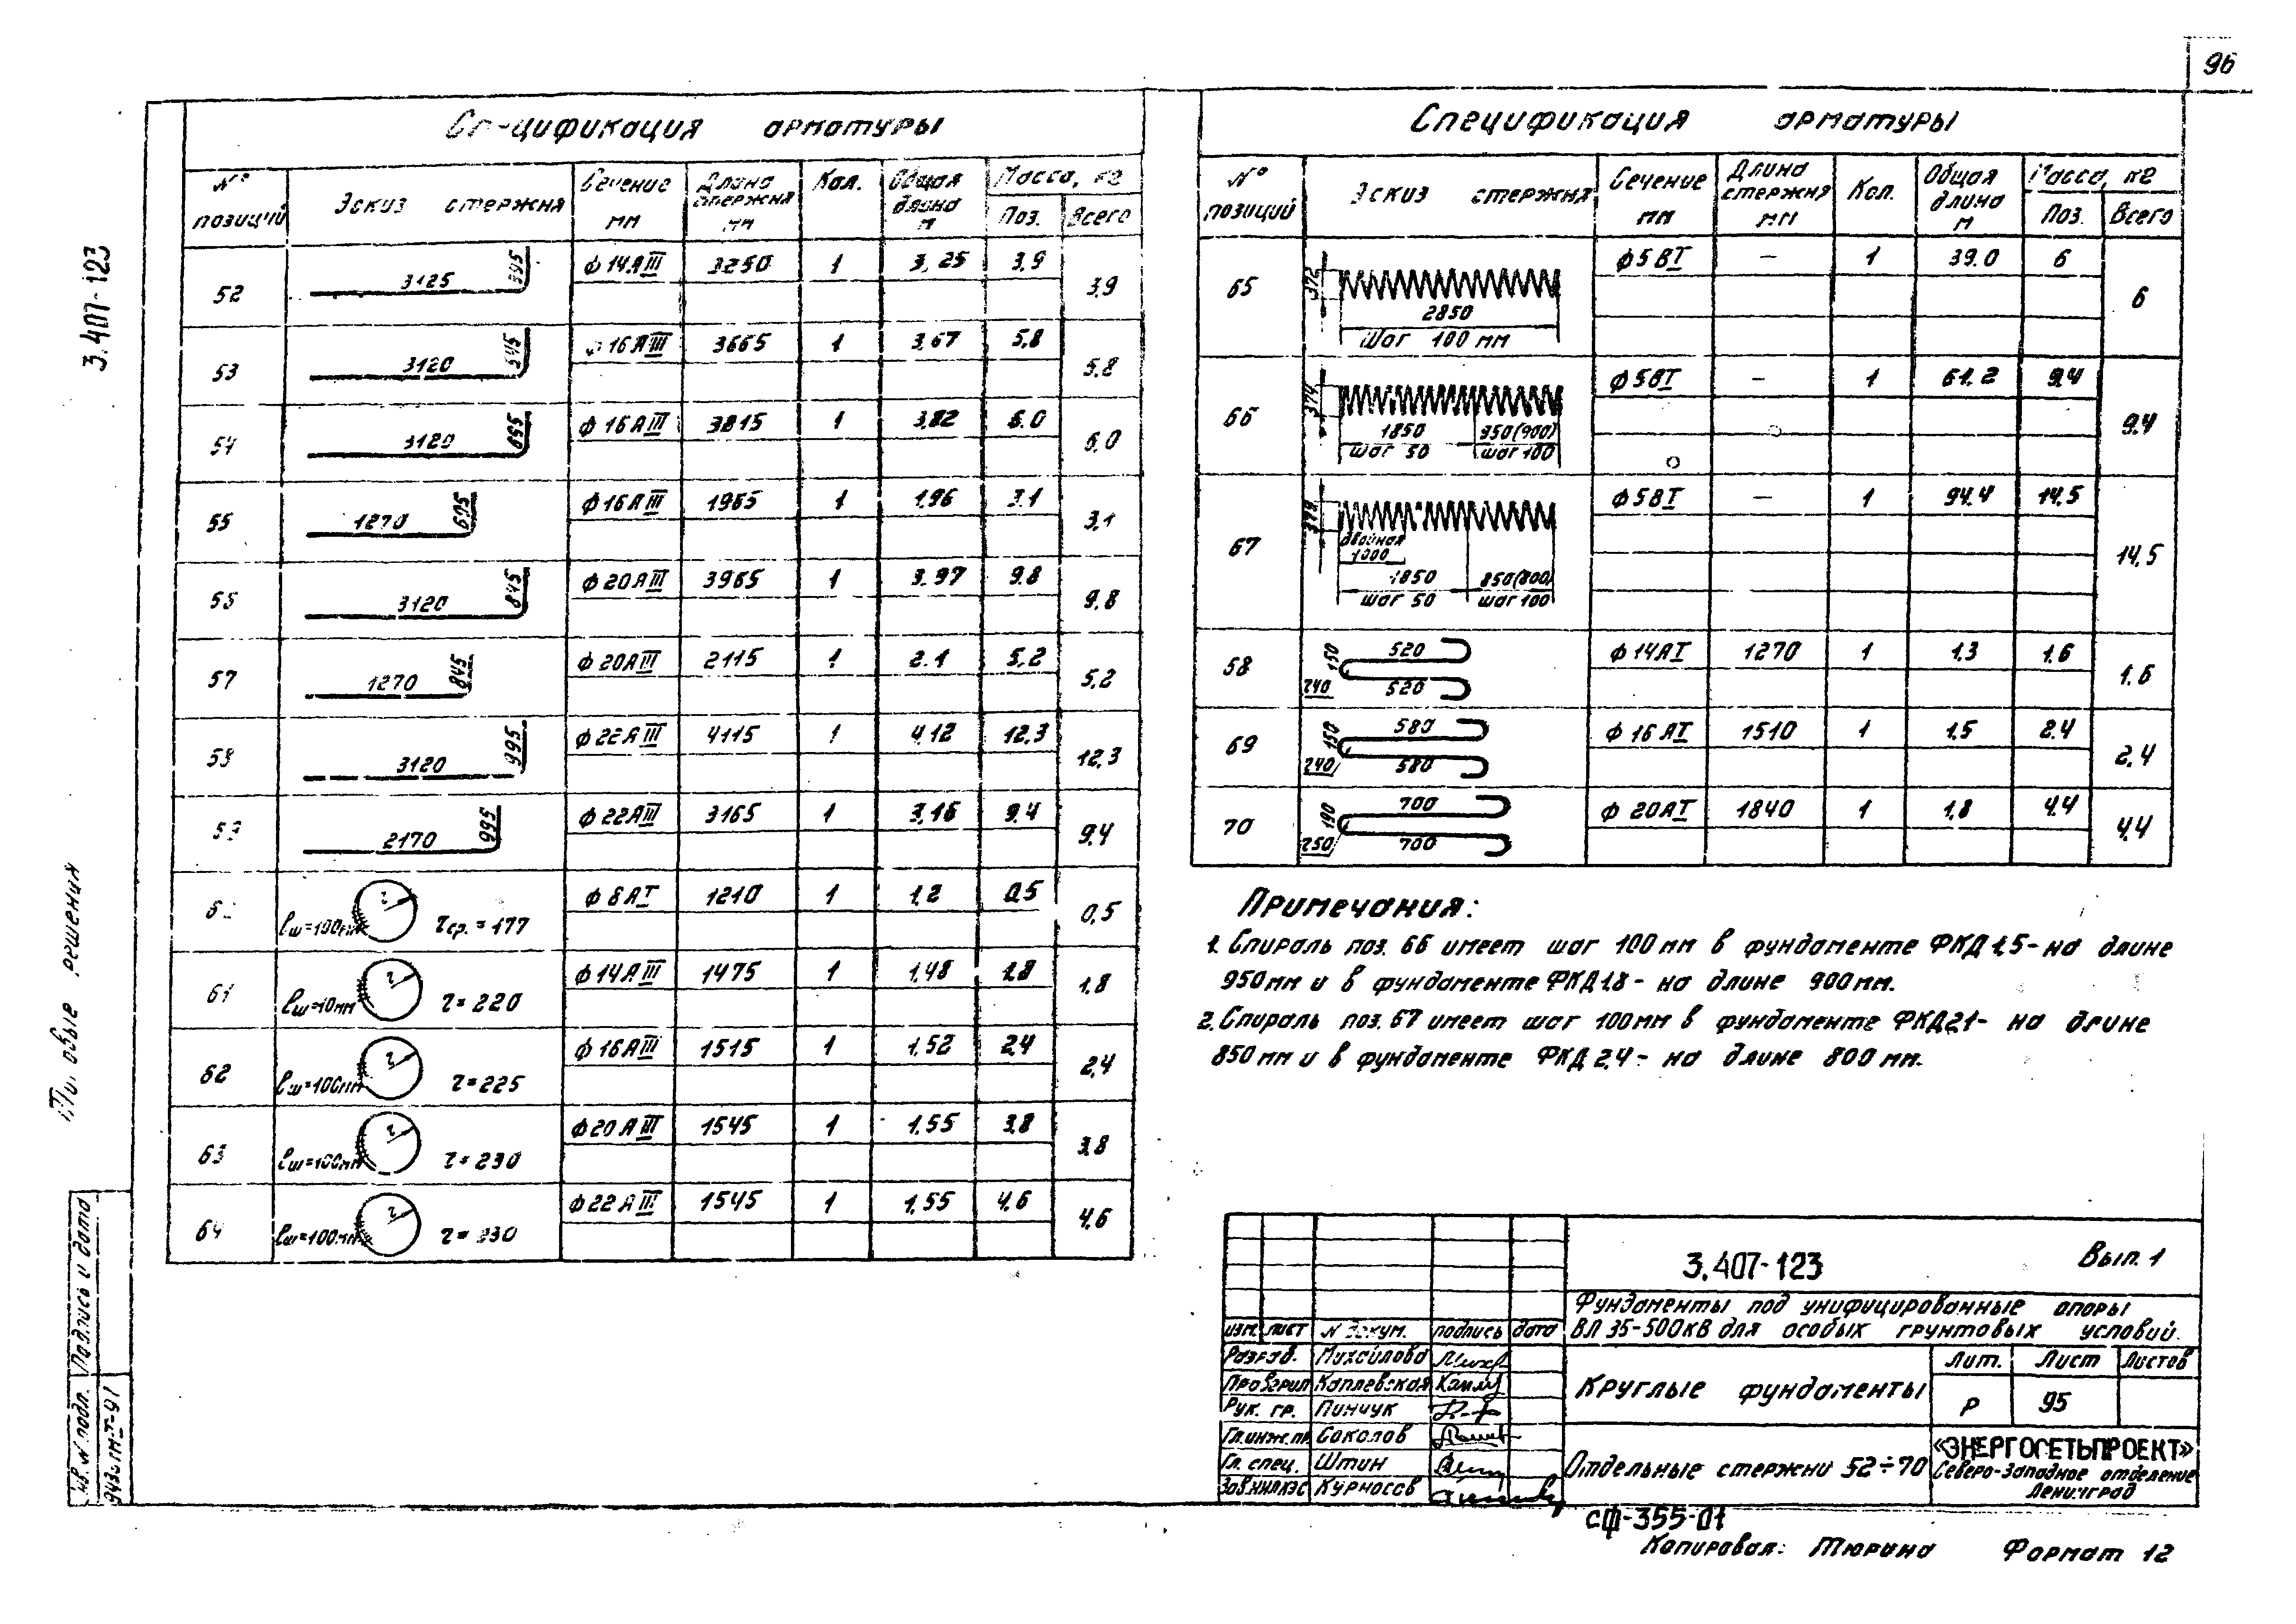 96
Спецификация арматуры
№ позиций Эскиз стержня Сечение мм Длина стержня мм Кол. Общая длина м Масса, кг Поз. Всего
52 3125 395 ф14АIII 3250 1 3,25 3,9 3,9
53 3120 545 ф16АIII 3665 1 3,67 5,8 5,8
54 3120 695 ф16АIII 3815 1 3,82 6.0 6,0
55 1270 695 ф16АIII 1965 1 1,96 3.1 3,1
3120 845 ф20АIII 3965 1 3.97 9.8 9,8
57 1270 845 ф20АIII 2115 1 2.1 5,2 5,2
58 3120 995 ф22АIII 4115 1 4,12 12,3 12,3
59 2170 995 ф22АIII 3165 1 3,16 9.4 9,4
lш=100мм r rср.=177 ф8АI 1210 1 1,2 0,5 0,5
61 lш=10мм r r=220 ф14АIII 1475 1 1,48 1,8 1,8
62 lш=100мм r r=225 ф16АIII 1515 1 1,52 2,4 2,4
63 lш=100мм r r=230 ф20АIII 1545 1 1,55 3,8 3,8
64 lш=100мм r r=230 ф22АIII 1545 1 1,55 4,6 4,6
Спецификация арматуры
№ позиций Эскиз стержня Сечение мм Длина стержня мм Кол. Общая длина м Масса, кг Поз. Всего
65 372 2850 Шаг 100 мм ф5ВI — 1 39.0 6 6
66 374 1850 950(900) шаг 50 шаг 100 ф5ВI — 1 61.2 9,4 9,4
67 379 двойная 1000 1850 850(800) шаг 50 шаг 100 ф5ВI — 1 94.4 14,5 14,5
68 150 240 520 520 ф14АI 1270 1 1,3 1.6 1.6
69 150 240 580 580 ф16АI 1510 1 1,5 2.4 2,4
70 190 250 700 700 ф20АI 1840 1 1,8 4,4 4,4
Примечания:
1. Спираль поз. 66 имеет шаг 100 мм в фундаменте ФКД1,5 - на длине
950мм и в фундаменте ФКД1.8 - на длине 900мм.
2. Спираль поз. 67 имеет шаг 100мм в фундаменте ФКД2,1 - на длине
850 мм и в фундаменте ФКД 2,4 - на длине 800 мм.
3.407-123
решения
Инв. N подл. Подпись и дата
3.407-123 Вып. 1
Фундаменты под унифицированные опоры
ВЛ 35-500кВ для особых грунтовых условий.
изм. лист N докум. подпись дата
Разраб. Михайлова
Проверил Каплевская
Рук. гр. Пинчук
Гл.инж.пр. Соколов
Гл. спец. Штин
Зав.НИЛКЭС Курносов
Круглые фундаменты
Лит. Лист Листов
Р 95
Отдельные стержни 52÷70
«ЭНЕРГОСЕТЬПРОЕКТ»
Северо-Западное отделение
Ленинград
сф-355-01
Копировал: Тюрина Формат 12